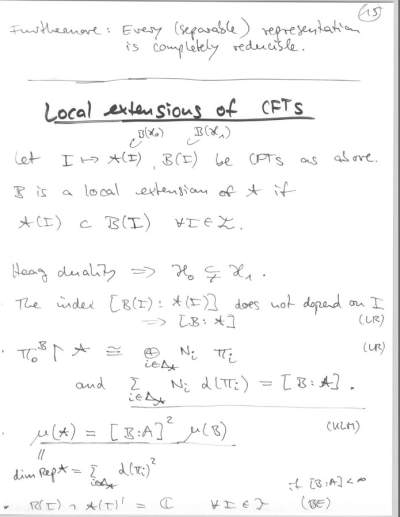 15
Furthermore: Every (separable) representation
is completely reducible.
Local extensions of CFTs
B(H₀) B(H₁)
Let I ↦ A(I), B(I) be CFTs as above.
B is a local extension of A if
A(I) ⊂ B(I) ∀ I ∈ ℐ.
Haag duality ⟹ H₀ ⊊ H₁.
The index [B(I) : A(I)] does not depend on I
⟹ [B : A] (LR)
· π₀ᴮ ↾ A ≅ ⊕_{i∈Δ_A} Nᵢ πᵢ (LR)
and ∑_{i∈Δ_A} Nᵢ d(πᵢ) = [B : A].
· μ(A) = [B:A]² μ(B) (KLM)
||
dim Rep A = ∑_{i∈Δ_A} d(πᵢ)²
if [B:A] < ∞
· B(I) ∩ A(I)' = ℂ ∀ I ∈ ℐ (BE)